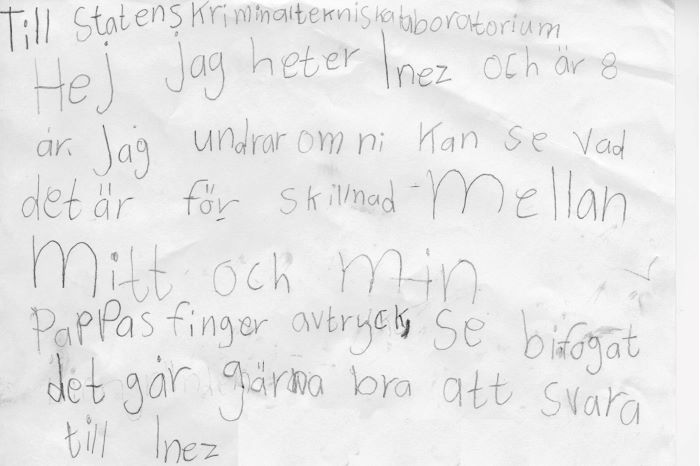 Till Statens Kriminaltekniska laboratorium
Hej jag heter Inez och är 8
år. Jag undrar om ni kan se vad
det är för skillnad mellan
Mitt och min
pappas finger avtryck, se bifogat
det går gärna bra att svara
till Inez